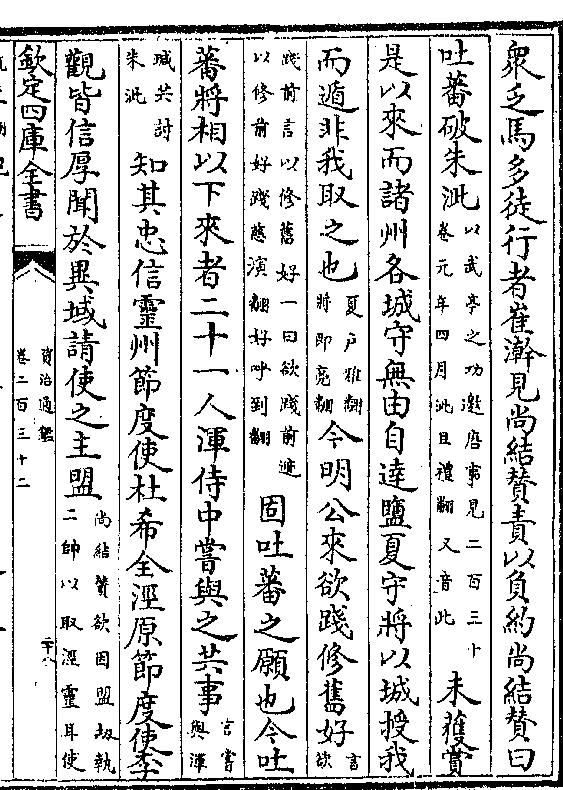 衆乏馬多徒行者崔澣見尚結賛責以負約尚結賛曰
吐蕃破朱泚以武亭之功邀唐事見二百三十卷元年四月泚且禮翻又音此未獲賞
是以來而諸州各城守無由自達鹽夏守將以城授我
而遁非我取之也夏戸雅翻將即亮翻今明公來欲踐修舊好言欲
踐前言以修舊好一曰欲踐前迹以修前好踐慈演翻好呼到翻固吐蕃之願也今吐
蕃將相以下來者二十一人渾侍中嘗與之共事言嘗與渾
瑊共討朱泚知其忠信靈州節度使杜希全涇原節度使李
觀皆信厚聞於異域請使之主盟尚結賛欲因盟劫執二帥以取涇靈耳使
欽定四庫全書
資治通鑑
卷二百三十二